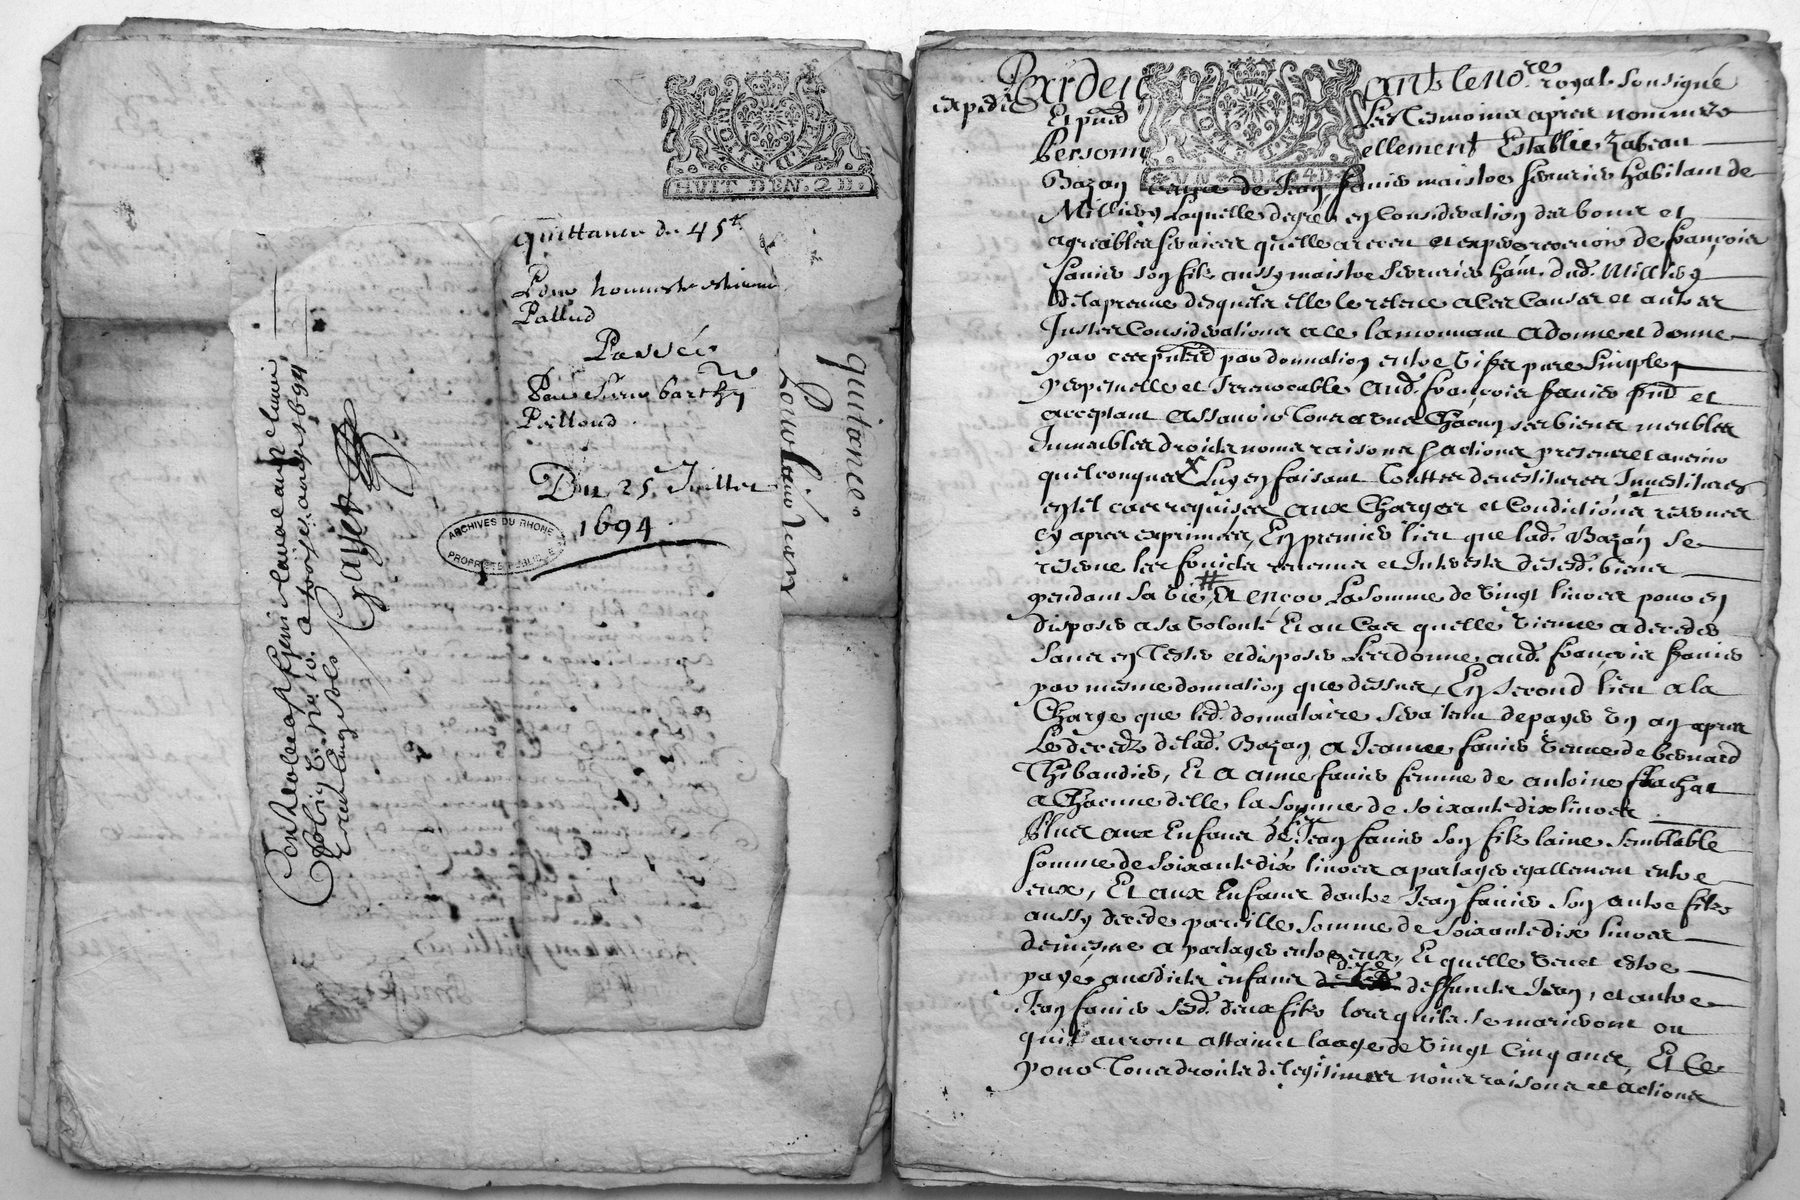 HUIT DEN. 2 D.
quittance de 45lt
Pour honneste
Pallud
Passée
Par Sieur barthy
Pillioud
Du 25 Juillet
1694
ARCHIVES DU RHONE
PROPRIETE PUBLIQUE
quitance
Pour
Controllé
1694
Gayet
expedié
Pardevant le nore royal soussigné
Et pnts les tesmoins apres nommes
Personnellement Establie Izabeau
UN SOL 4 D
Bazan vefve de Jean fanier maistre serrurier habitant de
Milliery Laquelle de gré en Consideration des bons et
agreables services quelle a receu et espere recevoir de françois
fanier son filz aussy maistre serrurier hant dud. Milliery
de la preuve desquels elle le releve a ces Causes et autres
Justes Considerations a ce la mouvant a donne et donne
par ces pntes par donnation entre vifs pure simple
perpetuelle et Irrevocable aud. françois fanier pnt et
acceptant assavoir tous et uns Chacuns ses biens meubles
Immeubles droits noms raisons & actions presents et advenir
quelconques Luy en faisant touttes devestitures Investitures
en tel cas requises aux Charges et Conditions et reserves
cy apres exprimées, En premier lieu que lad. Bazan se
reserve les fruicts revenus et Interests desesd. biens
pendant sa vie, # et encor La somme de vingt livres pour en
disposer a sa volonté Et au Cas quelle vienne a deceder
sans en tester et disposer Les donne aud. françois fanier
par mesme donnation que dessus, En second lieu a la
Charge que led. donnataire sera tenu de payer un an apres
Le deceds de lad. Bazan a Jeanne fanier veuve de bernard
Thibaudier, Et a anne fanier femme de antoine flachat
a Chacune delle la somme de soixante dix livres
Plus aux Enfans de feu Jean fanier son filz laine semblable
somme de soixante dix livres a partager egallement entre
eux, Et aux Enfans dautre Jean fanier son autre filz
aussy decedé pareille somme de soixante dix livres
de mesme a partager entre eux, Et quelle veut estre
payé ausdicts enfans deffuncts Jean, et autre
Jean fanier sesd. deux filz lors quils se marieront ou
quils auront attaint laage de vingt Cinq ans, Et Ce
pour Tous droicts de legitimes noms raisons et actions